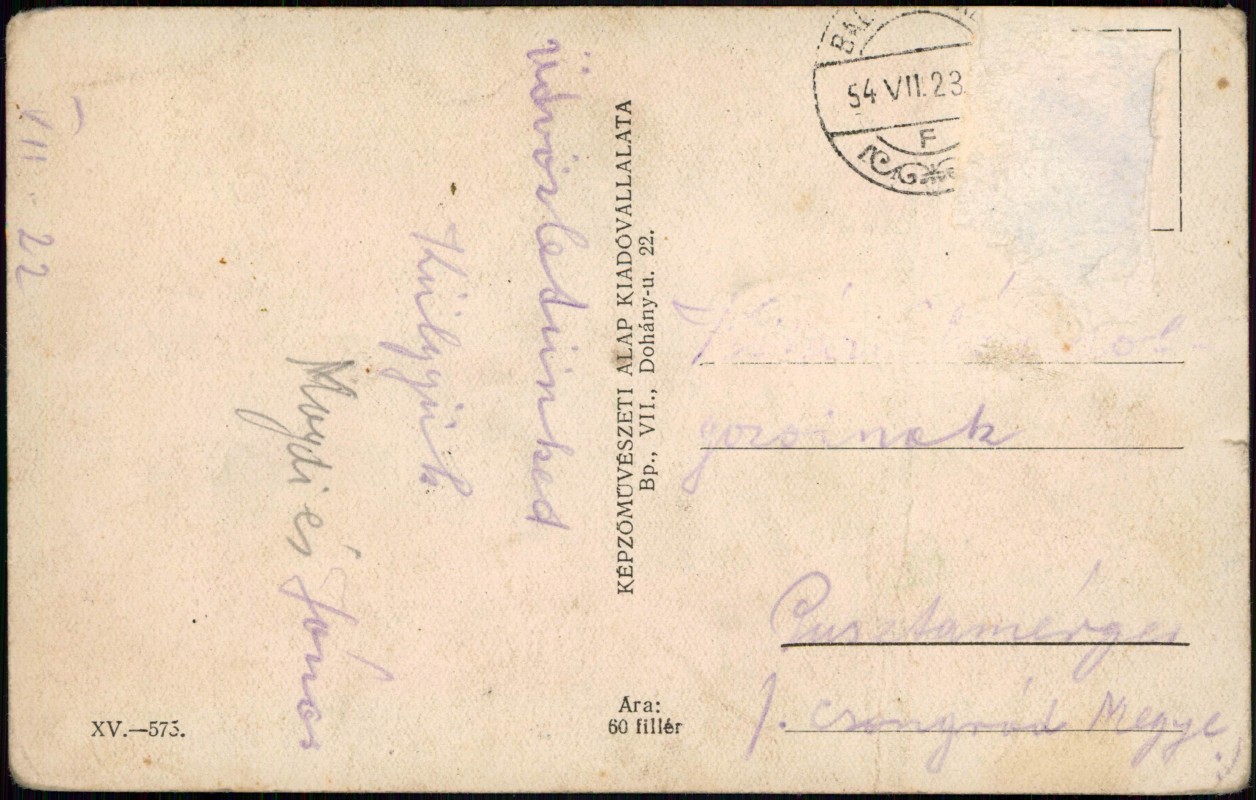 VII 22
üdvözletünked
Küldjük
Magdi és János
XV.—573.
KÉPZŐMŰVÉSZETI ALAP KIADÓVÁLLALATA
Bp., VII., Dohány-u. 22.
Ára:
60 fillér
54 VII. 23
F
gozóinak
Pusztamérges
Csongrád Megye